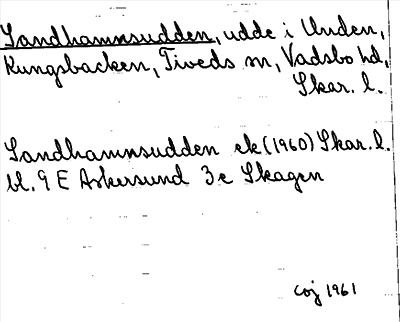 Sandhamnsudden, udde i Unden,
Kungsbacken, Tiveds sn, Vadsbo hd,
Skar. l.
Sandhamnsudden ek (1960) Skar. l.
bl. 9 E Askersund 3 e Skagen
COJ 1961